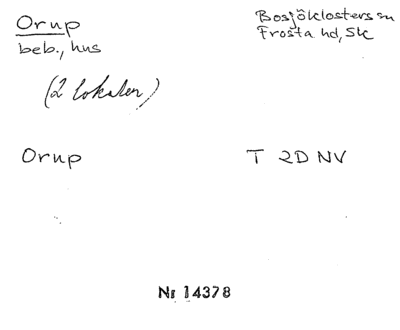 Orup
beb., hus
(2 lokaler)
Bosjöklosters sn
Frosta hd, Sk
Orup
T 2D NV
Nr 14378